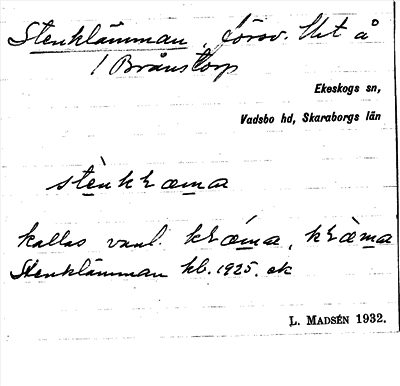 Stenklämman, försv. Ut å
/ Brånstorp
Ekeskogs sn,
Vadsbo hd, Skaraborgs län
stènkræma
kallas vanl. kræma, kræma
Stenklämman kb. 1925. ek
L. MADSÉN 1932.